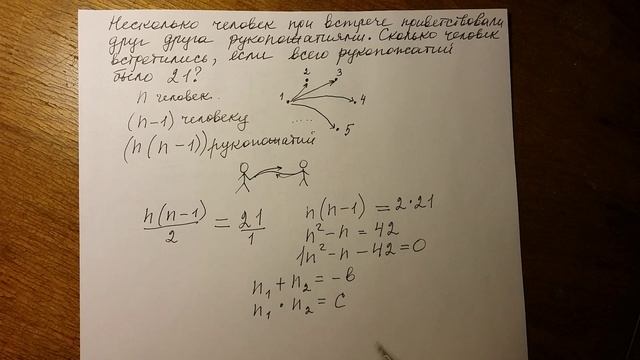 Несколько человек при встрече приветствовали
друг друга рукопожатиями. Сколько человек
встретились, если всего рукопожатий
было 21?
n человек.
(n-1) человеку
(n(n-1)) рукопожатий
1 2 3 4 5
.....
n(n-1)/2 = 21/1
n(n-1) = 2·21
n² - n = 42
1n² - n - 42 = 0
n₁ + n₂ = -в
n₁ · n₂ = с